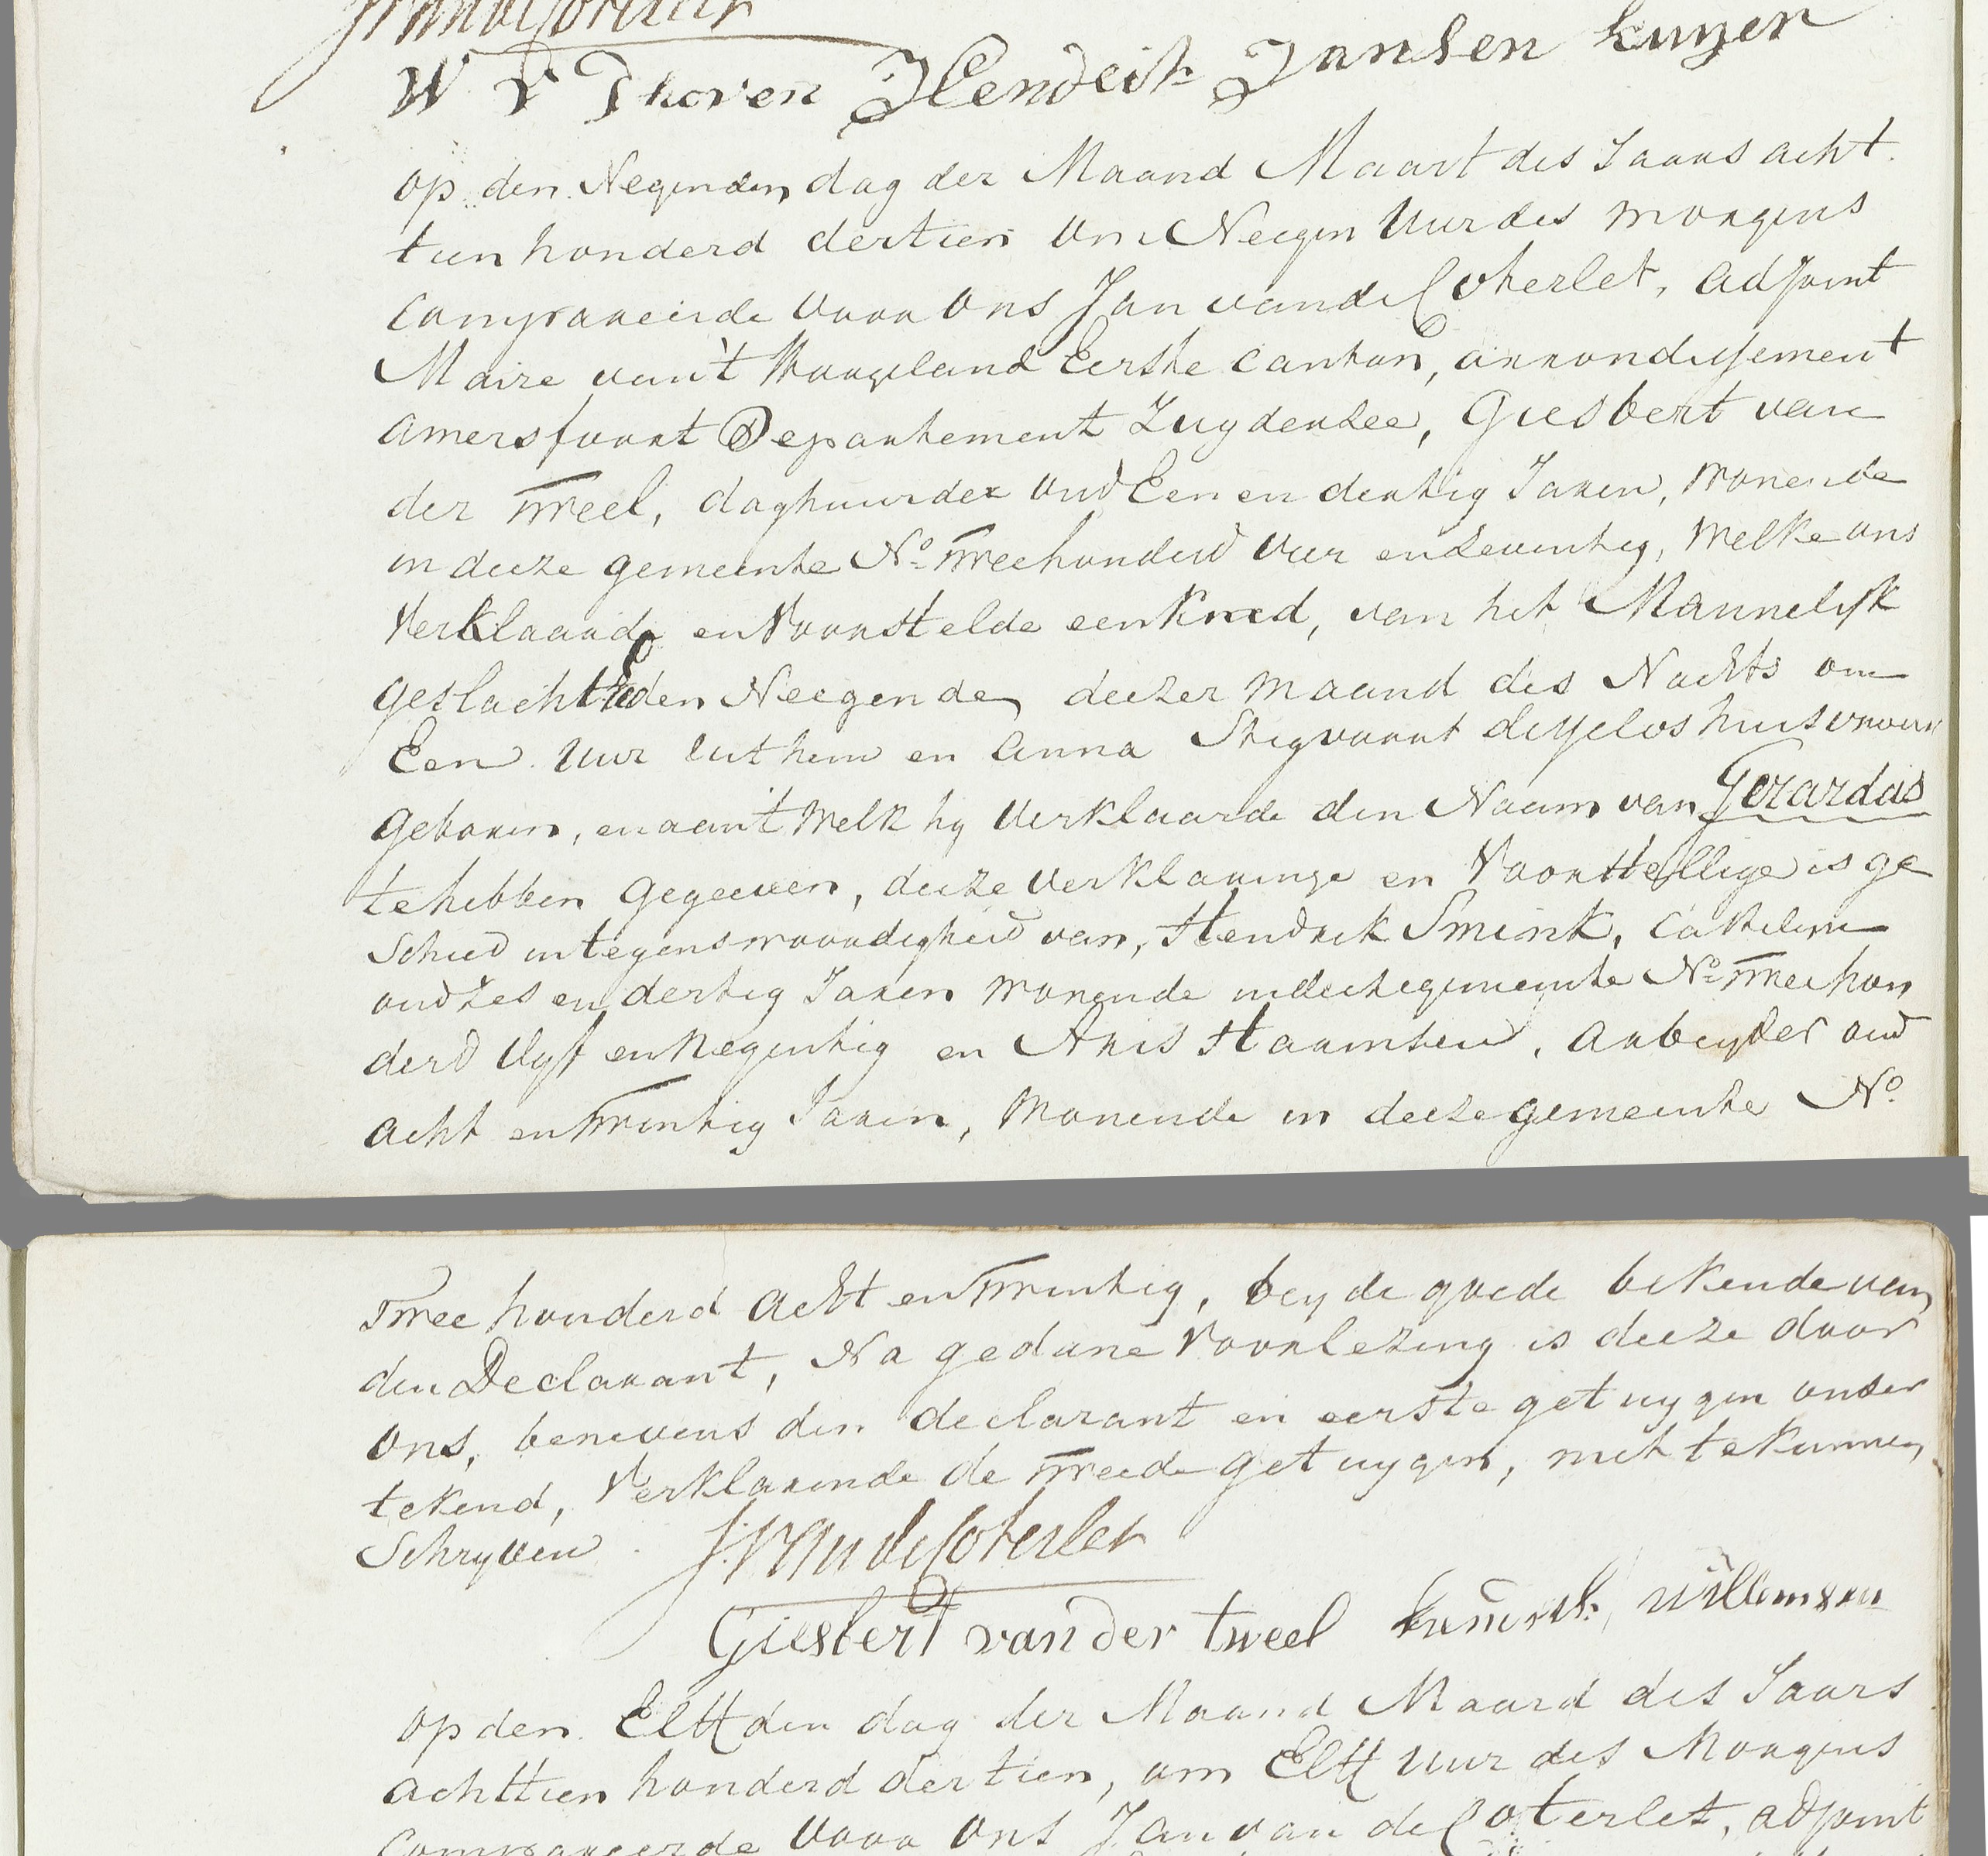 W V Thoven Hendrik Jansen kuyer
op den Negenden dag der Maand Maart des Jaars acht
tien honderd dertien om Neegen Uur des morgens
Compareerde voor ons Jan van de Coterlet, adjoint
Maire van't Hoogeland Eerste Canton, arrondissement
Amersfoort Departement Zuyderzee, Giesbert van
der Tweel, daghuurder oud Een en dertig Jaren, wonende
in deeze gemeente No. Tweehonderd vier en seventig, welke ons
Verklaarde en voorstelde een kind, van het Mannelijk
geslacht den Neegende deezer maand des Nachts om
Een Uur uit hem en Anna Stigvoort desselvs huisvrouw
geboren, en aan't welk hy verklaarde den Naam van Gerardus
te hebben gegeeven, deeze verklaringe en voorstellige is ge
schied in tegenswoordigheid van, Hendrik Smink, Castelyn
oud zes en dertig Jaren wonende in deeze gemeente No. Twee hon
derd vyf en Negentig en Aris Harmsen, arbeyder oud
acht en Twintig Jaren, wonende in deeze gemeente No.
Twee honderd acht en Twintig, beyde goede bekende van
den Declarant, Na gedane voorlezing is deeze door
ons, benevens den declarant en eerste getuygen onder
tekend, Verklarende de tweede getuygen, niet te kunnen
Schryven. J. van de Coterlet
Giesbert van der tweel willemsen
op den Elfden dag der Maand Maard des Jaars
achttien honderd dertien, om Elf Uur des Morgens
Compareerde voor ons Jan van de Coterlet, adjoint